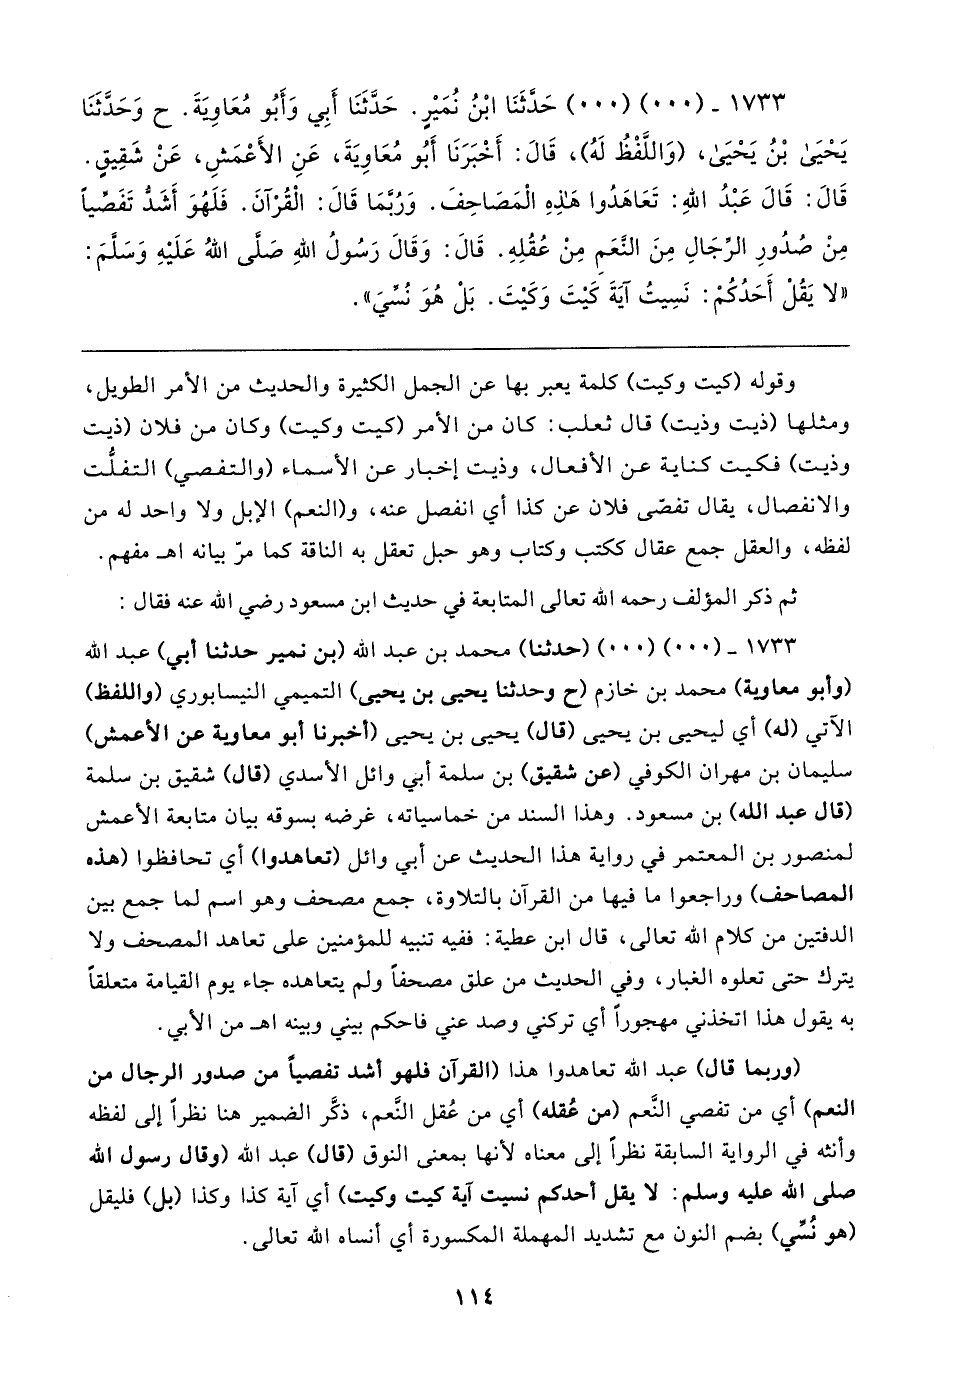 ١٧٣٣ ـ (٠٠٠) (٠٠٠) حَدَّثَنَا ابْنُ نُمَيْرٍ. حَدَّثَنَا أَبِي وَأَبُو مُعَاوِيَةَ. ح وَحَدَّثَنَا
يَحْيَىٰ بْنُ يَحْيَىٰ، (وَاللَّفْظُ لَهُ)، قَالَ: أَخْبَرَنَا أَبُو مُعَاوِيَةَ، عَنِ الأَعْمَشِ، عَنْ شَقِيقٍ.
قَالَ: قَالَ عَبْدُ اللهِ: تَعَاهَدُوا هَٰذِهِ الْمَصَاحِفَ. وَرُبَّمَا قَالَ: الْقُرْآنَ. فَلَهُوَ أَشَدُّ تَفَصِّياً
مِنْ صُدُورِ الرِّجَالِ مِنَ النَّعَمِ مِنْ عُقُلِهِ. قَالَ: وَقَالَ رَسُولُ اللهِ صَلَّى اللهُ عَلَيْهِ وَسَلَّمَ:
«لا يَقُلْ أَحَدُكُمْ: نَسِيتُ آيَةَ كَيْتَ وَكَيْتَ. بَلْ هُوَ نُسِّيَ».
وقوله (كيت وكيت) كلمة يعبر بها عن الجمل الكثيرة والحديث من الأمر الطويل،
ومثلها (ذيت وذيت) قال ثعلب: كان من الأمر (كيت وكيت) وكان من فلان (ذيت
وذيت) فكيت كناية عن الأفعال، وذيت إخبار عن الأسماء (والتفصي) التفلُّت
والانفصال، يقال تفصّى فلان عن كذا أي انفصل عنه، و(النعم) الإبل ولا واحد له من
لفظه، والعقل جمع عقال ككتب وكتاب وهو حبل تعقل به الناقة كما مرّ بيانه اهـ مفهم.
ثم ذكر المؤلف رحمه الله تعالى المتابعة في حديث ابن مسعود رضي الله عنه فقال :
١٧٣٣ ـ (٠٠٠) (٠٠٠) (حدثنا) محمد بن عبد الله (بن نمير حدثنا أبي) عبد الله
(وأبو معاوية) محمد بن خازم (ح وحدثنا يحيى بن يحيى) التميمي النيسابوري (واللفظ)
الآتي (له) أي ليحيى بن يحيى (قال) يحيى بن يحيى (أخبرنا أبو معاوية عن الأعمش)
سليمان بن مهران الكوفي (عن شقيق) بن سلمة أبي وائل الأسدي (قال) شقيق بن سلمة
(قال عبد الله) بن مسعود. وهذا السند من خماسياته، غرضه بسوقه بيان متابعة الأعمش
لمنصور بن المعتمر في رواية هذا الحديث عن أبي وائل (تعاهدوا) أي تحافظوا (هذه
المصاحف) وراجعوا ما فيها من القرآن بالتلاوة، جمع مصحف وهو اسم لما جمع بين
الدفتين من كلام الله تعالى، قال ابن عطية: ففيه تنبيه للمؤمنين على تعاهد المصحف ولا
يترك حتى تعلوه الغبار، وفي الحديث من علق مصحفاً ولم يتعاهده جاء يوم القيامة متعلقاً
به يقول هذا اتخذني مهجوراً أي تركني وصد عني فاحكم بيني وبينه اهـ من الأبي.
(وربما قال) عبد الله تعاهدوا هذا (القرآن فلهو أشد تفصياً من صدور الرجال من
النعم) أي من تفصي النَّعم (من عُقله) أي من عُقل النَّعم، ذكَّر الضمير هنا نظراً إلى لفظه
وأنثه في الرواية السابقة نظراً إلى معناه لأنها بمعنى النوق (قال) عبد الله (وقال رسول الله
صلى الله عليه وسلم: لا يقل أحدكم نسيت آية كيت وكيت) أي آية كذا وكذا (بل) فليقل
(هو نُسِّي) بضم النون مع تشديد المهملة المكسورة أي أنساه الله تعالى.
١١٤